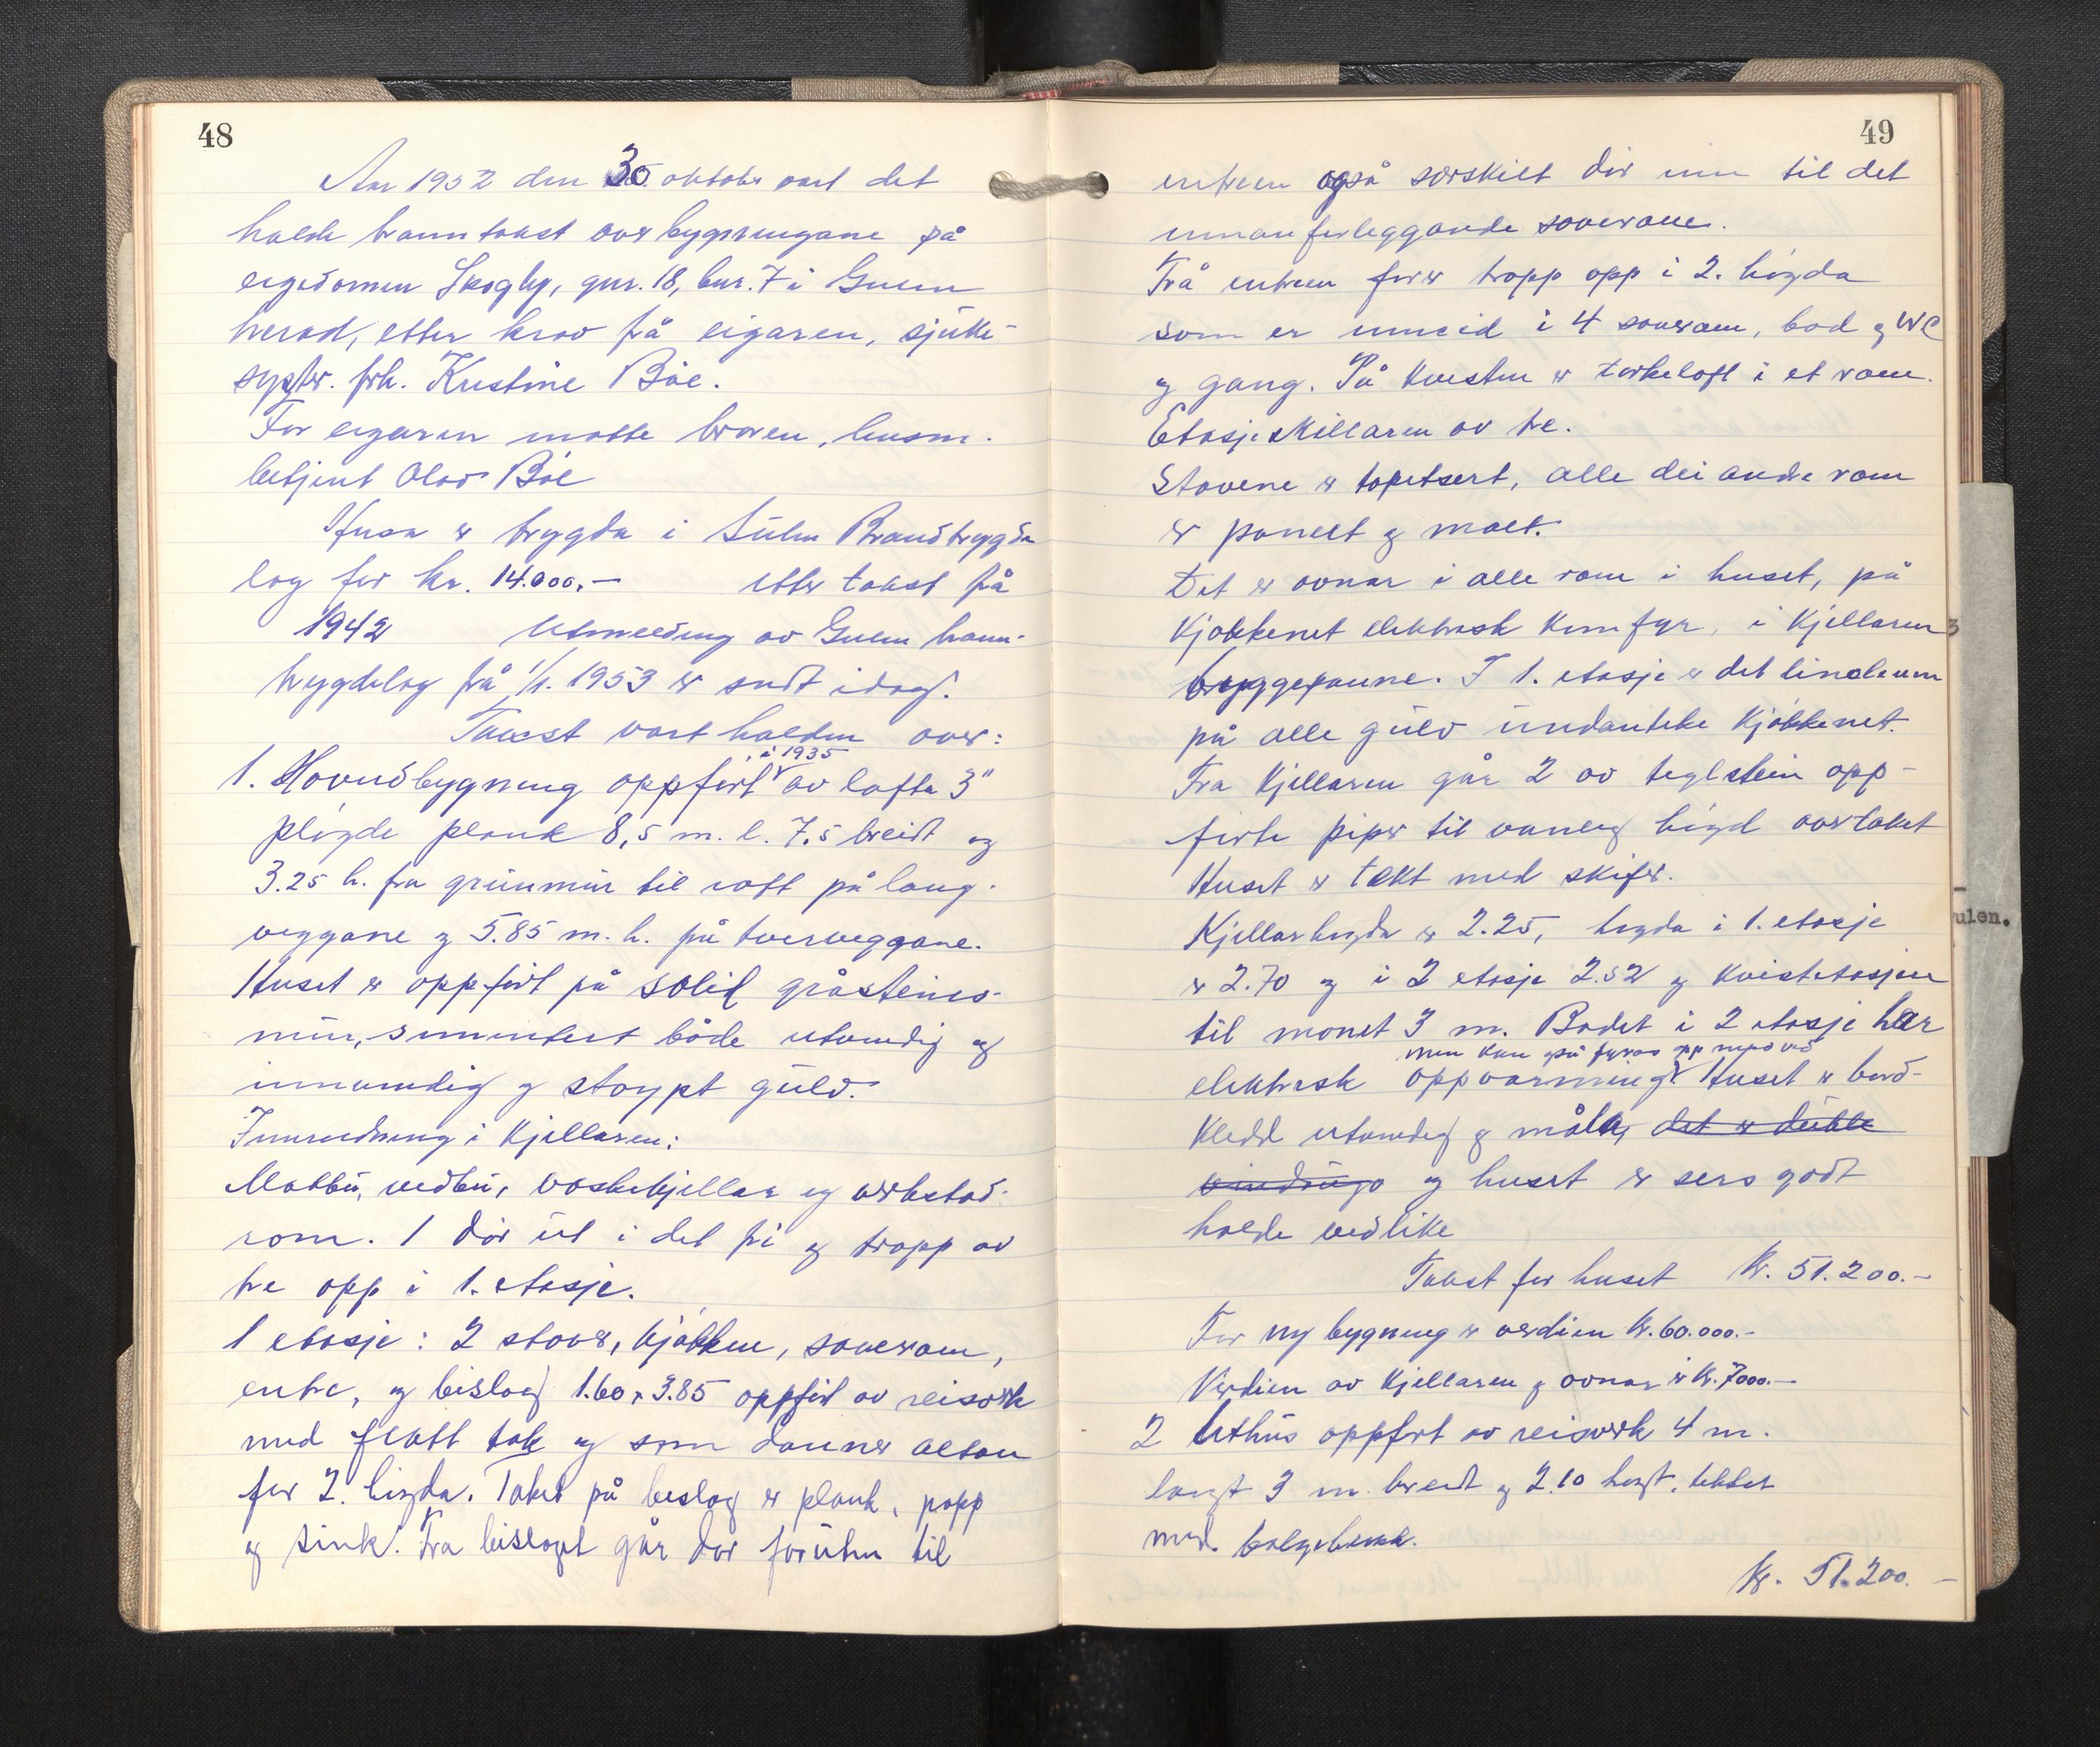 48
Aar 1952 den 30 oktober vart det
halde branntakst over bygningane på
eigedomen Skogly, gnr. 18, bnr. 7 i Gulen
herad, etter krav frå eigaren, sjuke-
syster. frk. Kristine Böe.
For eigaren møtte broren, husm.
betjent Olav Böe
Husa er trygda i Sulen Brandtrygde
lag for kr. 14.000.- etter takst frå
1942 Utmelding av Gulen brann-
trygdelag frå 1/1. 1953 er sendt idag.
Takst vart halden over:
i 1935
1. Hovudbygning oppfört av lafta 3"
plögde plank 8,5 m. l. 7.5 breidt og
3.25 h. fra grunmür til raft på lang-
veggane og 5.85 m. h. på tverveggane.
Huset er oppfört på solid gråsteins-
mür, sementert både utvendig og
innvendig og støypt gülv.
Innreidning i Kjellaren:
Matbü, vedbü, vaskekjellar og verkstad-
rom. 1 dör üt i det fri og tropp av
tre opp i 1. etasje.
1 etasje: 2 stover, kjøkken, soverom,
entre, og bislag 1.60 x 3.85 oppfört av reisverk
med flatt tak og som danner altan
for 2. högda. Taket på beslag er plank, papp
og sink. Fra bislaget går dør forüten til
49
entreen også særskilt dör inn til det
innanforleggande soverom.
Frå entreen fører tropp opp i 2. högda
som er inneid i 4 soverom, bad og WC
og gang. På kvisten er tørkeloft i et rom.
Etasjeskillaren av tre.
Stovene er tapetsert, alle dei andre rom
er panelt og malt.
Det er ovnar i alle rom i huset, på
Kjøkkenet elektrisk Komfyr, i Kjellaren
bryggepanne. I 1. etasje er det linoleum
på alle gülv ündanteke Kjøkkenet.
Fra Kjellaren går 2 av teglstein opp-
førte piper til vanleg högd over taket
Huset er tekt med skifer.
Kjellarhøgda er 2.25, høgda i 1. etasje
er 2.70 og i 2 etasje 2.52 og Kvistetasjen
til mønet 3 m. Badet i 2 etasje har
men kan også fyras opp med ved
elektrisk oppvarming. Huset er bord-
kledd utvendig og måla, det er duble
vindügo og huset er sers godt
halde vedlike
Takst for huset Kr. 51.200.-
For ny bygning er verdien Kr. 60.000.-
Verdien av Kjellaren og ovnar er Kr. 7000.-
2 Uthüs oppfört av reisverk 4 m.
langt 3 m. breidt og 2.10 høgt. tekket
med. bølgeblekk.
Kr. 51.200.-
ulen.